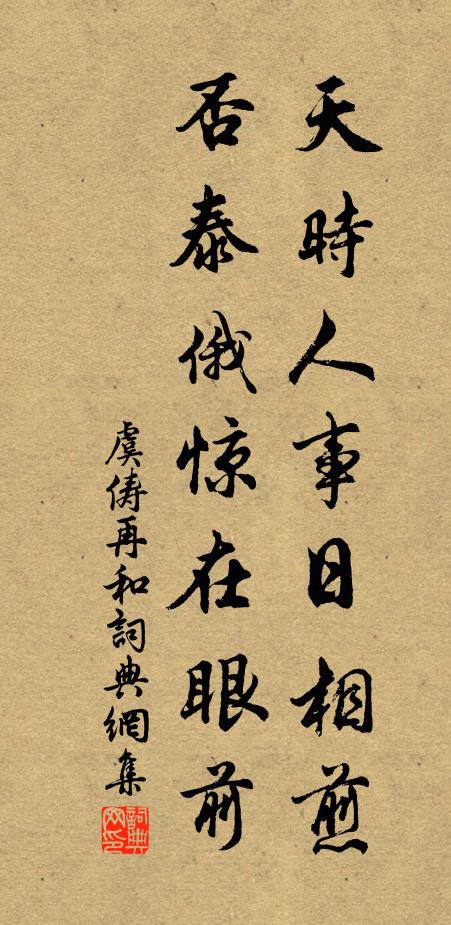 天時人事日相煎
否泰俄惊在眼前
虞儔再和詞典網集
詞典網印